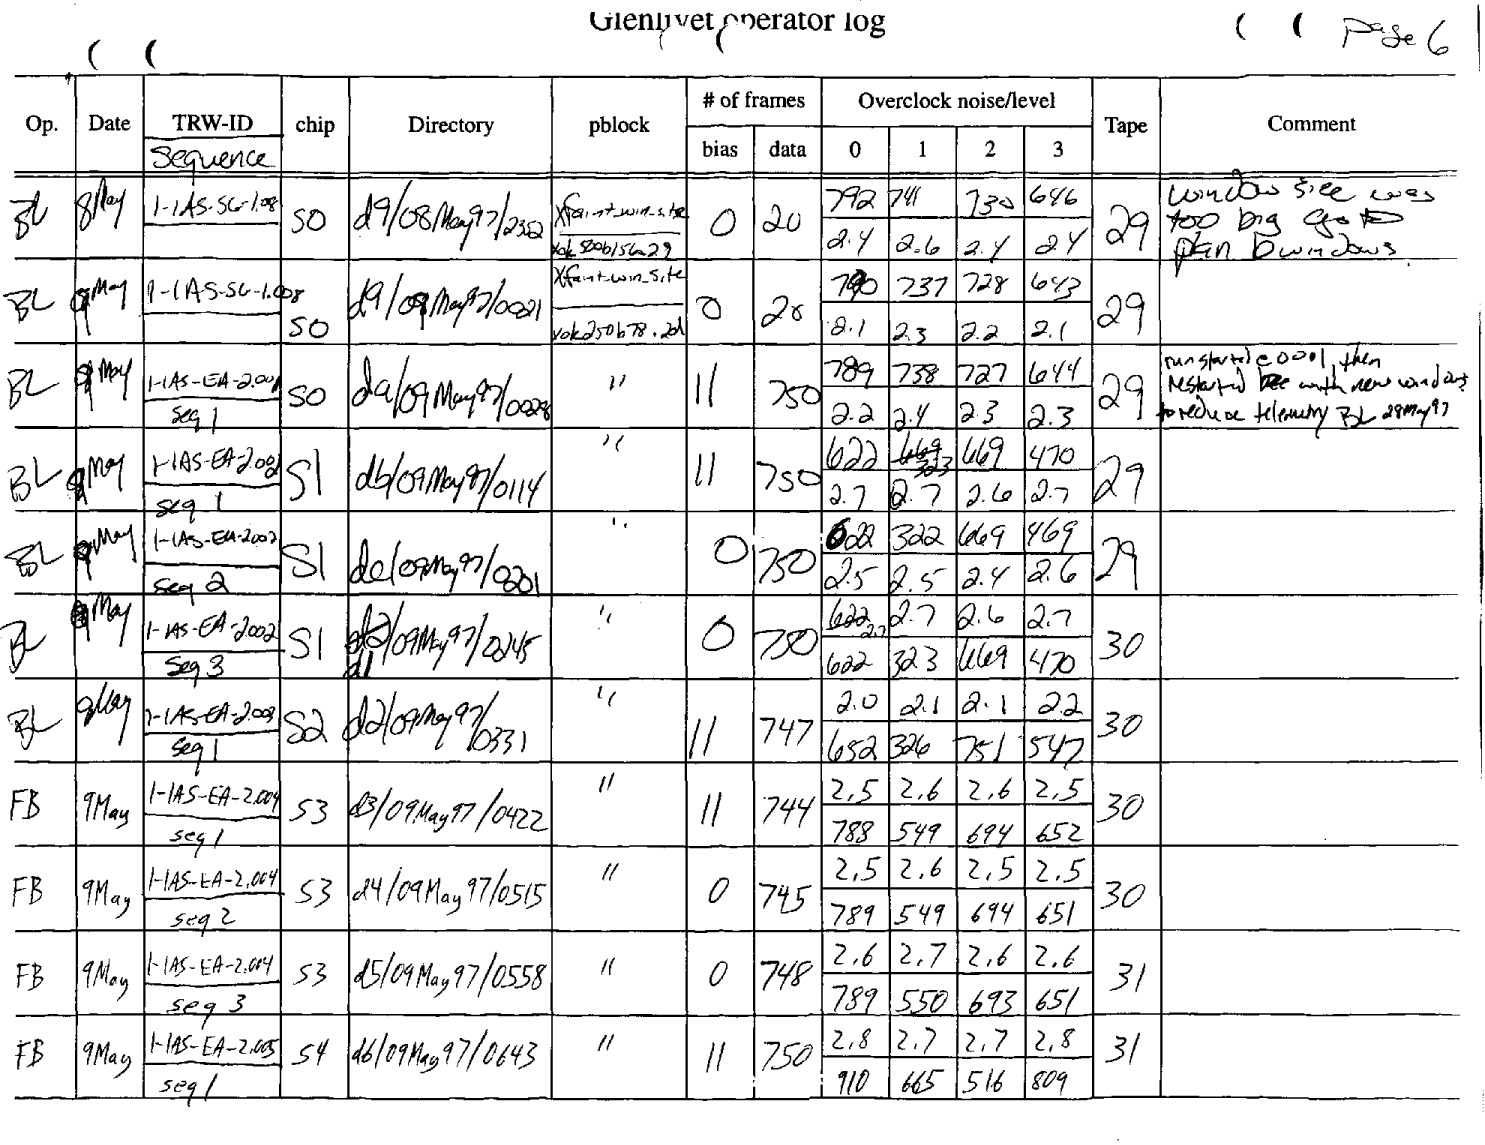 Glenlivet operator log
page 6
Op. Date TRW-ID chip Directory pblock # of frames Overclock noise/level Tape Comment
Sequence bias data 0 1 2 3
BL 8May 1-IAS-SG-1.08 S0 d9/08May97/2352 Xfaint_win_site 0 20 792 741 730 646 29 window size was
2.4 2.6 2.4 2.4 too big go to
plan b windows
BL 9May 1-IAS-SG-1.008 S0 d9/09May97/0021 Xfaint_win_site 0 20 790 737 728 643 29
2.1 2.3 2.2 2.1
BL 9May 1-IAS-EA-2.001 S0 da/09May97/0028 " 11 750 789 738 727 644 29 run started @ 0001, then
seg 1 2.2 2.4 2.3 2.3 restarted with new windows
to reduce telemetry BL 28May97
BL 9May 1-IAS-EA-2.002 S1 db/09May97/0114 " 11 750 622 323 669 470 29
seq 1 2.7 2.7 2.6 2.7
BL 9May 1-IAS-EA-2002 S1 de/09May97/0201 " 0 750 622 322 669 469 29
seq 2 2.5 2.5 2.4 2.6
BL 9May 1-IAS-EA-2002 S1 d1/09May97/0245 " 0 750 2.7 2.7 2.6 2.7 30
seg 3 622 323 669 470
BL 9May 1-IAS-EA-2.003 S2 d2/09May97/0331 " 11 747 2.0 2.1 2.1 2.2 30
seq 1 652 326 751 547
FB 9May 1-IAS-EA-2.004 S3 d3/09May97/0422 " 11 744 2.5 2.6 2.6 2.5 30
seq 1 788 549 694 652
FB 9May 1-IAS-EA-2.004 S3 d4/09May97/0515 " 0 745 2.5 2.6 2.5 2.5 30
seq 2 789 549 694 651
FB 9May 1-IAS-EA-2.004 S3 d5/09May97/0558 " 0 748 2.6 2.7 2.6 2.6 31
seq 3 789 550 693 651
FB 9May 1-IAS-EA-2.005 S4 d6/09May97/0643 " 11 750 2.8 2.7 2.7 2.8 31
seq 1 910 665 516 809